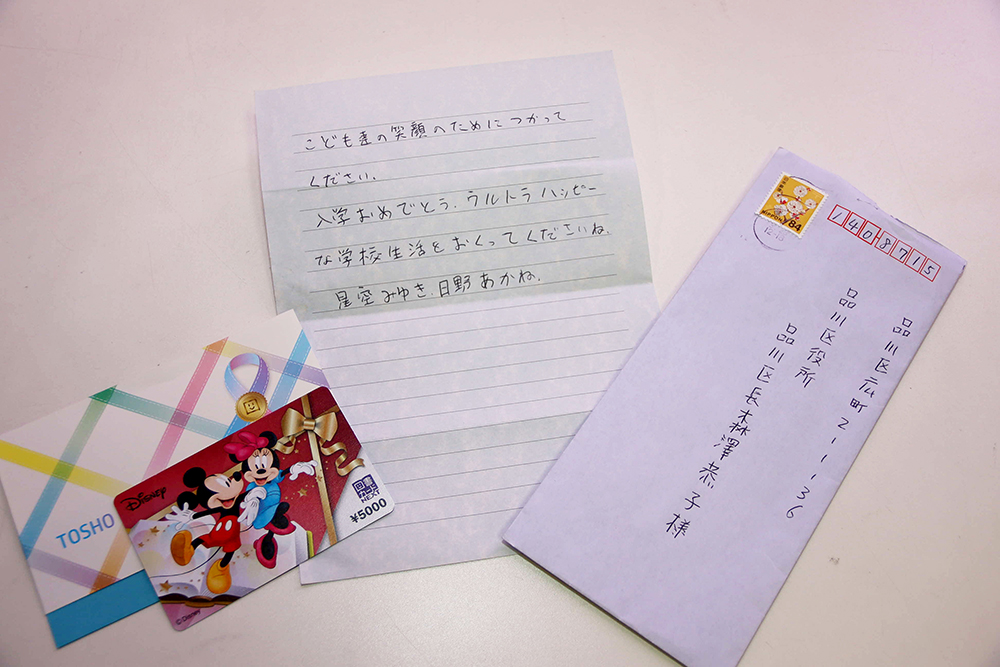 こども達の笑顔のためにつかって
ください.
入学おめでとう.ウルトラハッピー
な学校生活をおくってくださいね.
星空みゆき.日野あかね.
TOSHO
Disney
図書
カード
NEXT
¥5000
© Disney
NIPPON ¥84
1408715
品川区広町2-1-36
品川区役所
品川区長森澤恭子様